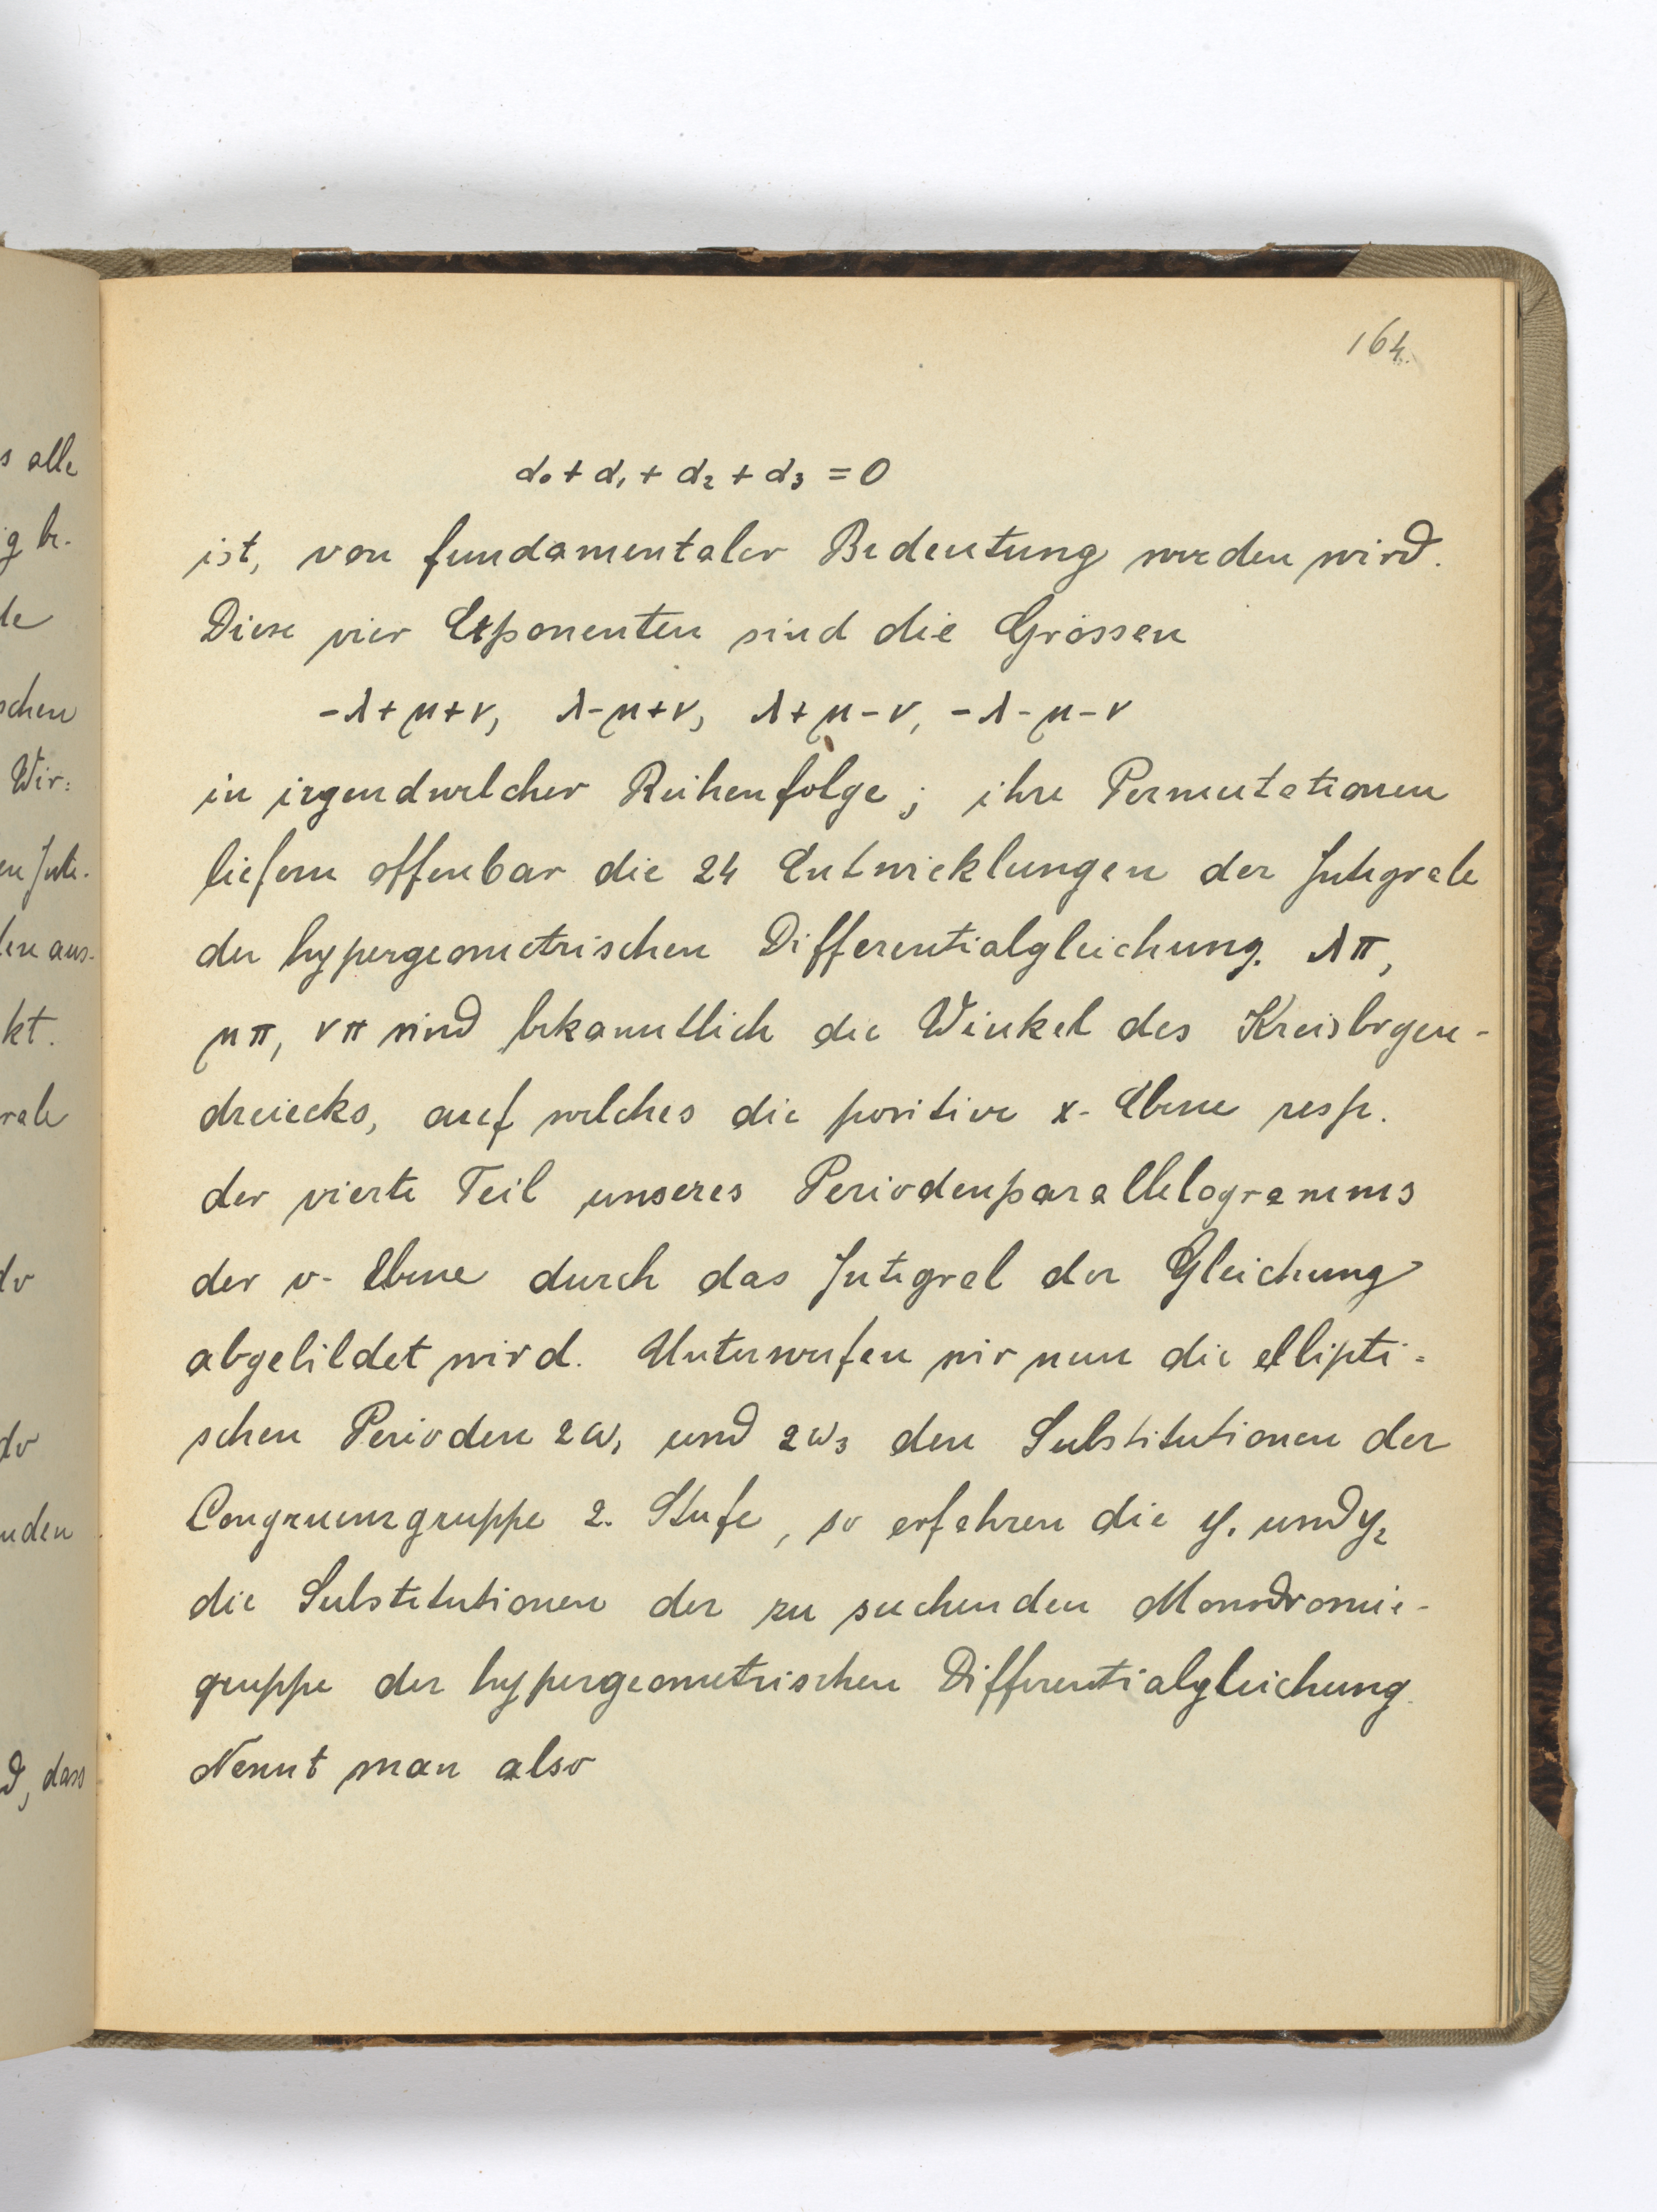 164.
α₀ + α₁ + α₂ + α₃ = 0
ist, von fundamentaler Bedeutung werden wird.
Diese vier Exponenten sind die Grössen
-λ+μ+ν, λ-μ+ν, λ+μ-ν, -λ-μ-ν
in irgendwelcher Reihenfolge; ihre Permutationen
liefern offenbar die 24 Entwicklungen der Integrale
der hypergeometrischen Differentialgleichung. λπ,
μπ, νπ sind bekanntlich die Winkel des Kreisbogen-
dreiecks, auf welches die positive x-Ebene resp.
der vierte Teil unseres Periodenparallelogramms
der v-Ebene durch das Integral der Gleichung
abgebildet wird. Unterwerfen wir nun die ellipti=
schen Perioden 2ω₁ und 2ω₃ den Substitutionen der
Congruenzgruppe 2. Stufe, so erfahren die y₁ und y₂
die Substitutionen der zu suchenden Monodromie-
gruppe der hypergeometrischen Differentialgleichung.
Nennt man also
s alle
g be-
de
schen
Wir=
en Inte-
len aus-
kt.
rale
dv
dv
nden
d, dass